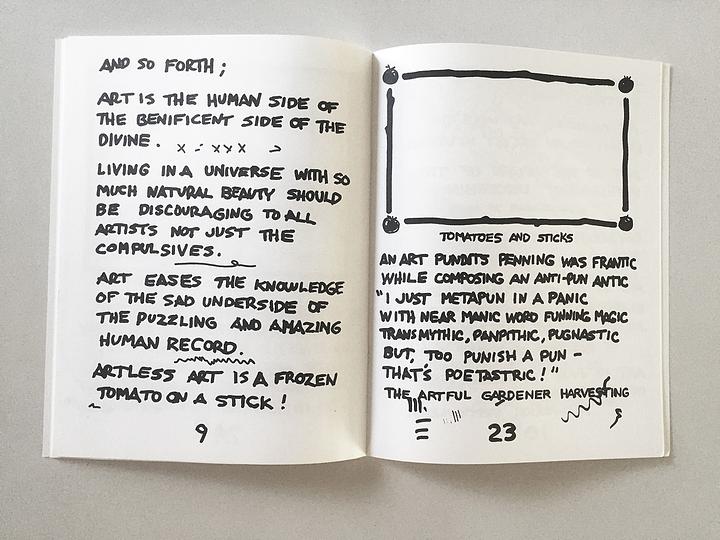 AND SO FORTH;
ART IS THE HUMAN SIDE OF
THE BENIFICENT SIDE OF THE
DIVINE.
LIVING IN A UNIVERSE WITH SO
MUCH NATURAL BEAUTY SHOULD
BE DISCOURAGING TO ALL
ARTISTS NOT JUST THE
COMPULSIVES.
ART EASES THE KNOWLEDGE
OF THE SAD UNDERSIDE OF
THE PUZZLING AND AMAZING
HUMAN RECORD.
ARTLESS ART IS A FROZEN
TOMATO ON A STICK!
9
TOMATOES AND STICKS
AN ART PUNDITS PENNING WAS FRANTIC
WHILE COMPOSING AN ANTI-PUN ANTIC
"I JUST METAPUN IN A PANIC
WITH NEAR MANIC WORD FUNNING MAGIC
TRANSMYTHIC, PANPITHIC, PUGNASTIC
BUT, TOO PUNISH A PUN -
THAT'S POETASTRIC!"
THE ARTFUL GARDENER HARVESTING
23